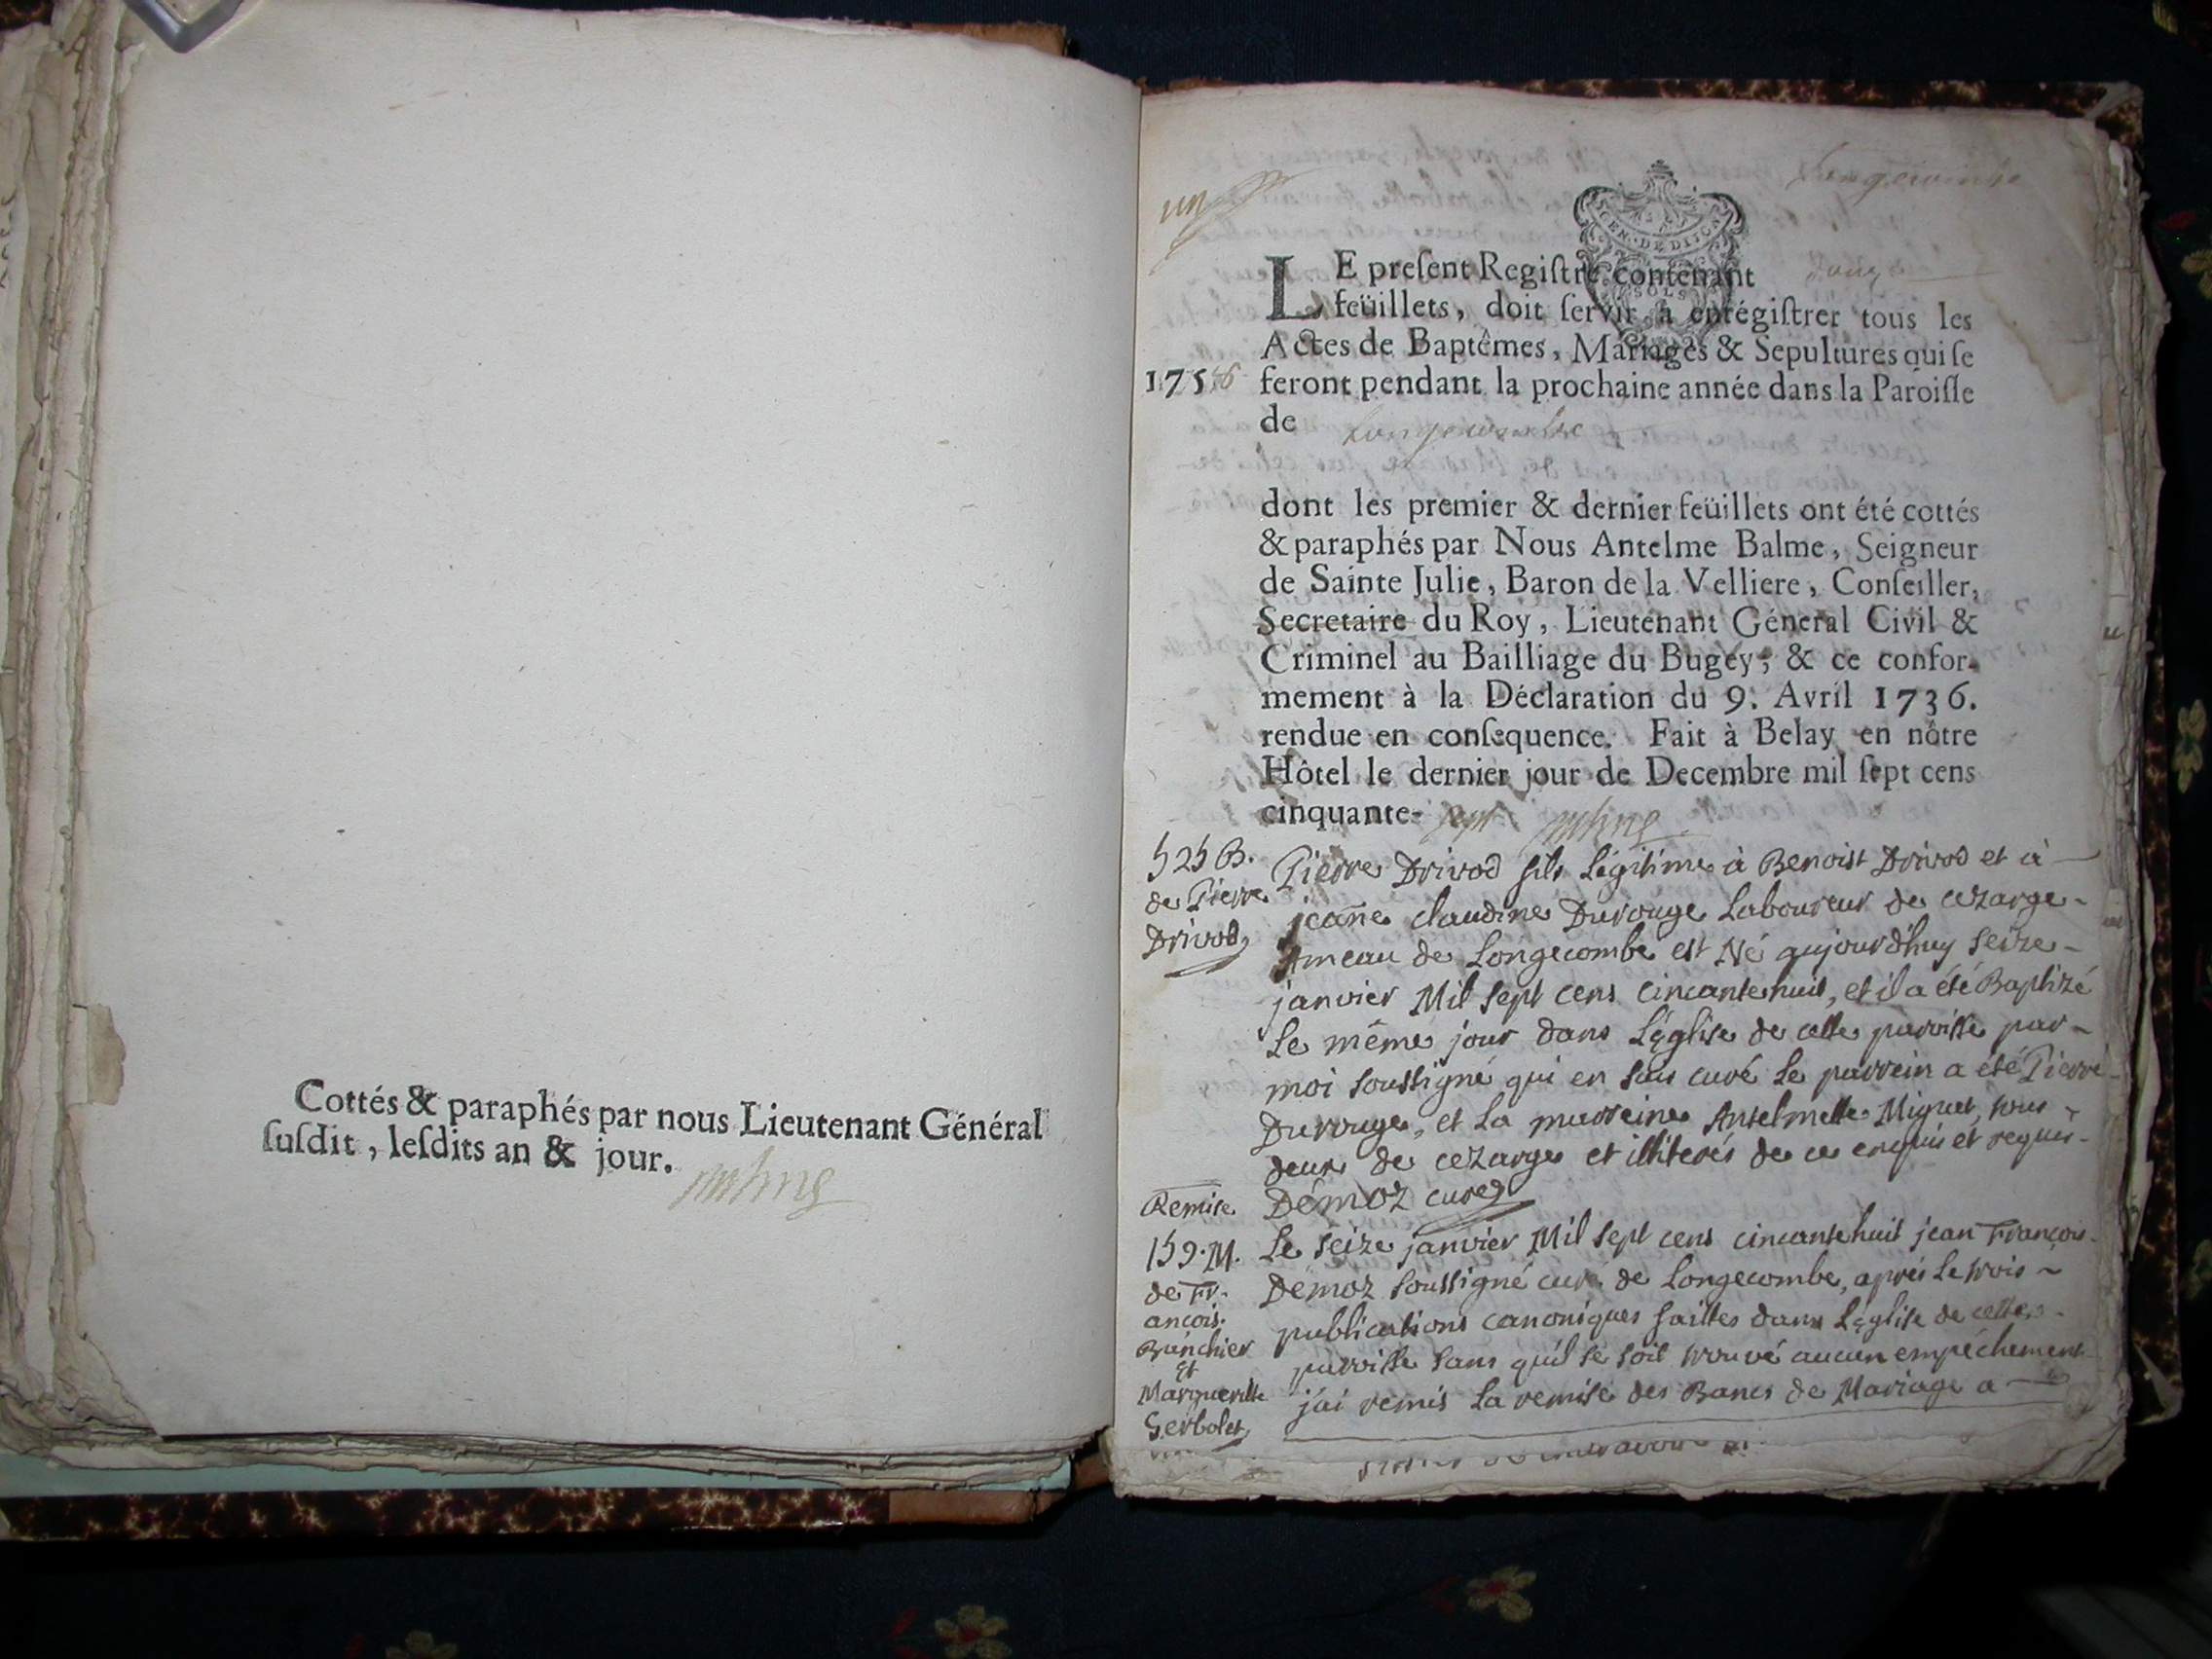 Cottés & paraphés par nous Lieutenant Général
ſuſdit, leſdits an & jour.
un
Longecombe
GEN. DE DIJON
SOLS
LE preſent Regiſtre contenant
feüillets, doit ſervir à enrégiſtrer tous les
Actes de Baptêmes, Mariages & Sepultures qui ſe
175
feront pendant la prochaine année dans la Paroiſſe
de Longecombe
dont les premier & dernier feüillets ont été cottés
& paraphés par Nous Antelme Balme, Seigneur
de Sainte Julie, Baron de la Velliere, Conſeiller,
Secretaire du Roy, Lieutenant Géneral Civil &
Criminel au Bailliage du Bugey; & ce confor-
mement à la Déclaration du 9. Avril 1736.
rendue en conſequence. Fait à Belay en nôtre
Hôtel le dernier jour de Decembre mil ſept cens
cinquante- sept
525 B.
de Pierre
Drivod
Pierre Drivod fils Légitime à Benoist Drivod et à
jeane claudine Durouge Laboureur de cezarge
Ameau de Longecombe est Né aujourd'huy seize
janvier Mil sept cens cincantehuit, et il a été Baptizé
Le même jour dans L'église de cette paroisse par
moi soussigné qui en suis curé Le parrein a été Pierre
Durouge, et La marreine Antelmette Miguet, tous
deux de cezarge et illiterés de ce enquis et requis
Démoz curé
Remise
159. M.
de Fr-
ancois
Bunchier
et
Marguerite
Gerbolet
Le seize janvier Mil sept cens cincantehuit jean François
Démoz soussigné curé de Longecombe, aprés Le trois
publications canoniques faittes dans L'église de cette
paroisse sans qu'il se soit trouvé aucun empéchement
j'ai remis La remise des Bancs de Mariage a